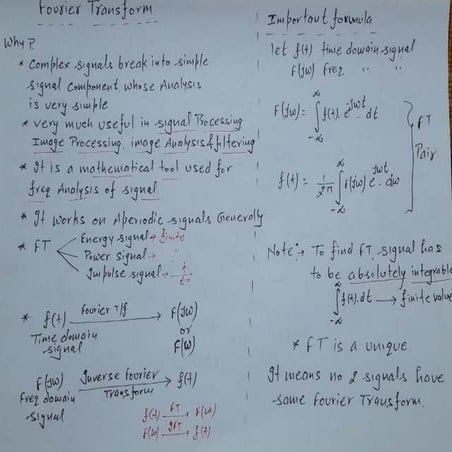 Fourier Transform
Why?
* Complex signals break into simple
signal Component whose Analysis
is very simple
* very much useful in signal Processing
Image Processing, image Analysis & filtering
* It is a mathematical tool used for
freq Analysis of signal
* It works on Aperiodic signals Generally
* FT
Energy signal → finite
Power signal →
Impulse signal →
* f(t) Fourier T/f → F(jω)
or
F(ω)
Time domain
signal
F(jω) Inverse Fourier Transform → f(t)
Freq domain
signal
f(t) FT → F(ω)
F(ω) IFT → f(t)
Important formula
let f(t) time domain signal
F(jω) freq " "
F(jω) = ∫ f(t). e^-jωt. dt
-∞ ∞
f(t) = 1/2π ∫ F(jω) e^jωt. dω
-∞ ∞
FT
Pair
Note:→ To find FT, signal has
to be absolutely integrable
∫ f(t). dt → finite value
-∞ ∞
* FT is a unique
It means no 2 signals have
same Fourier Transform.